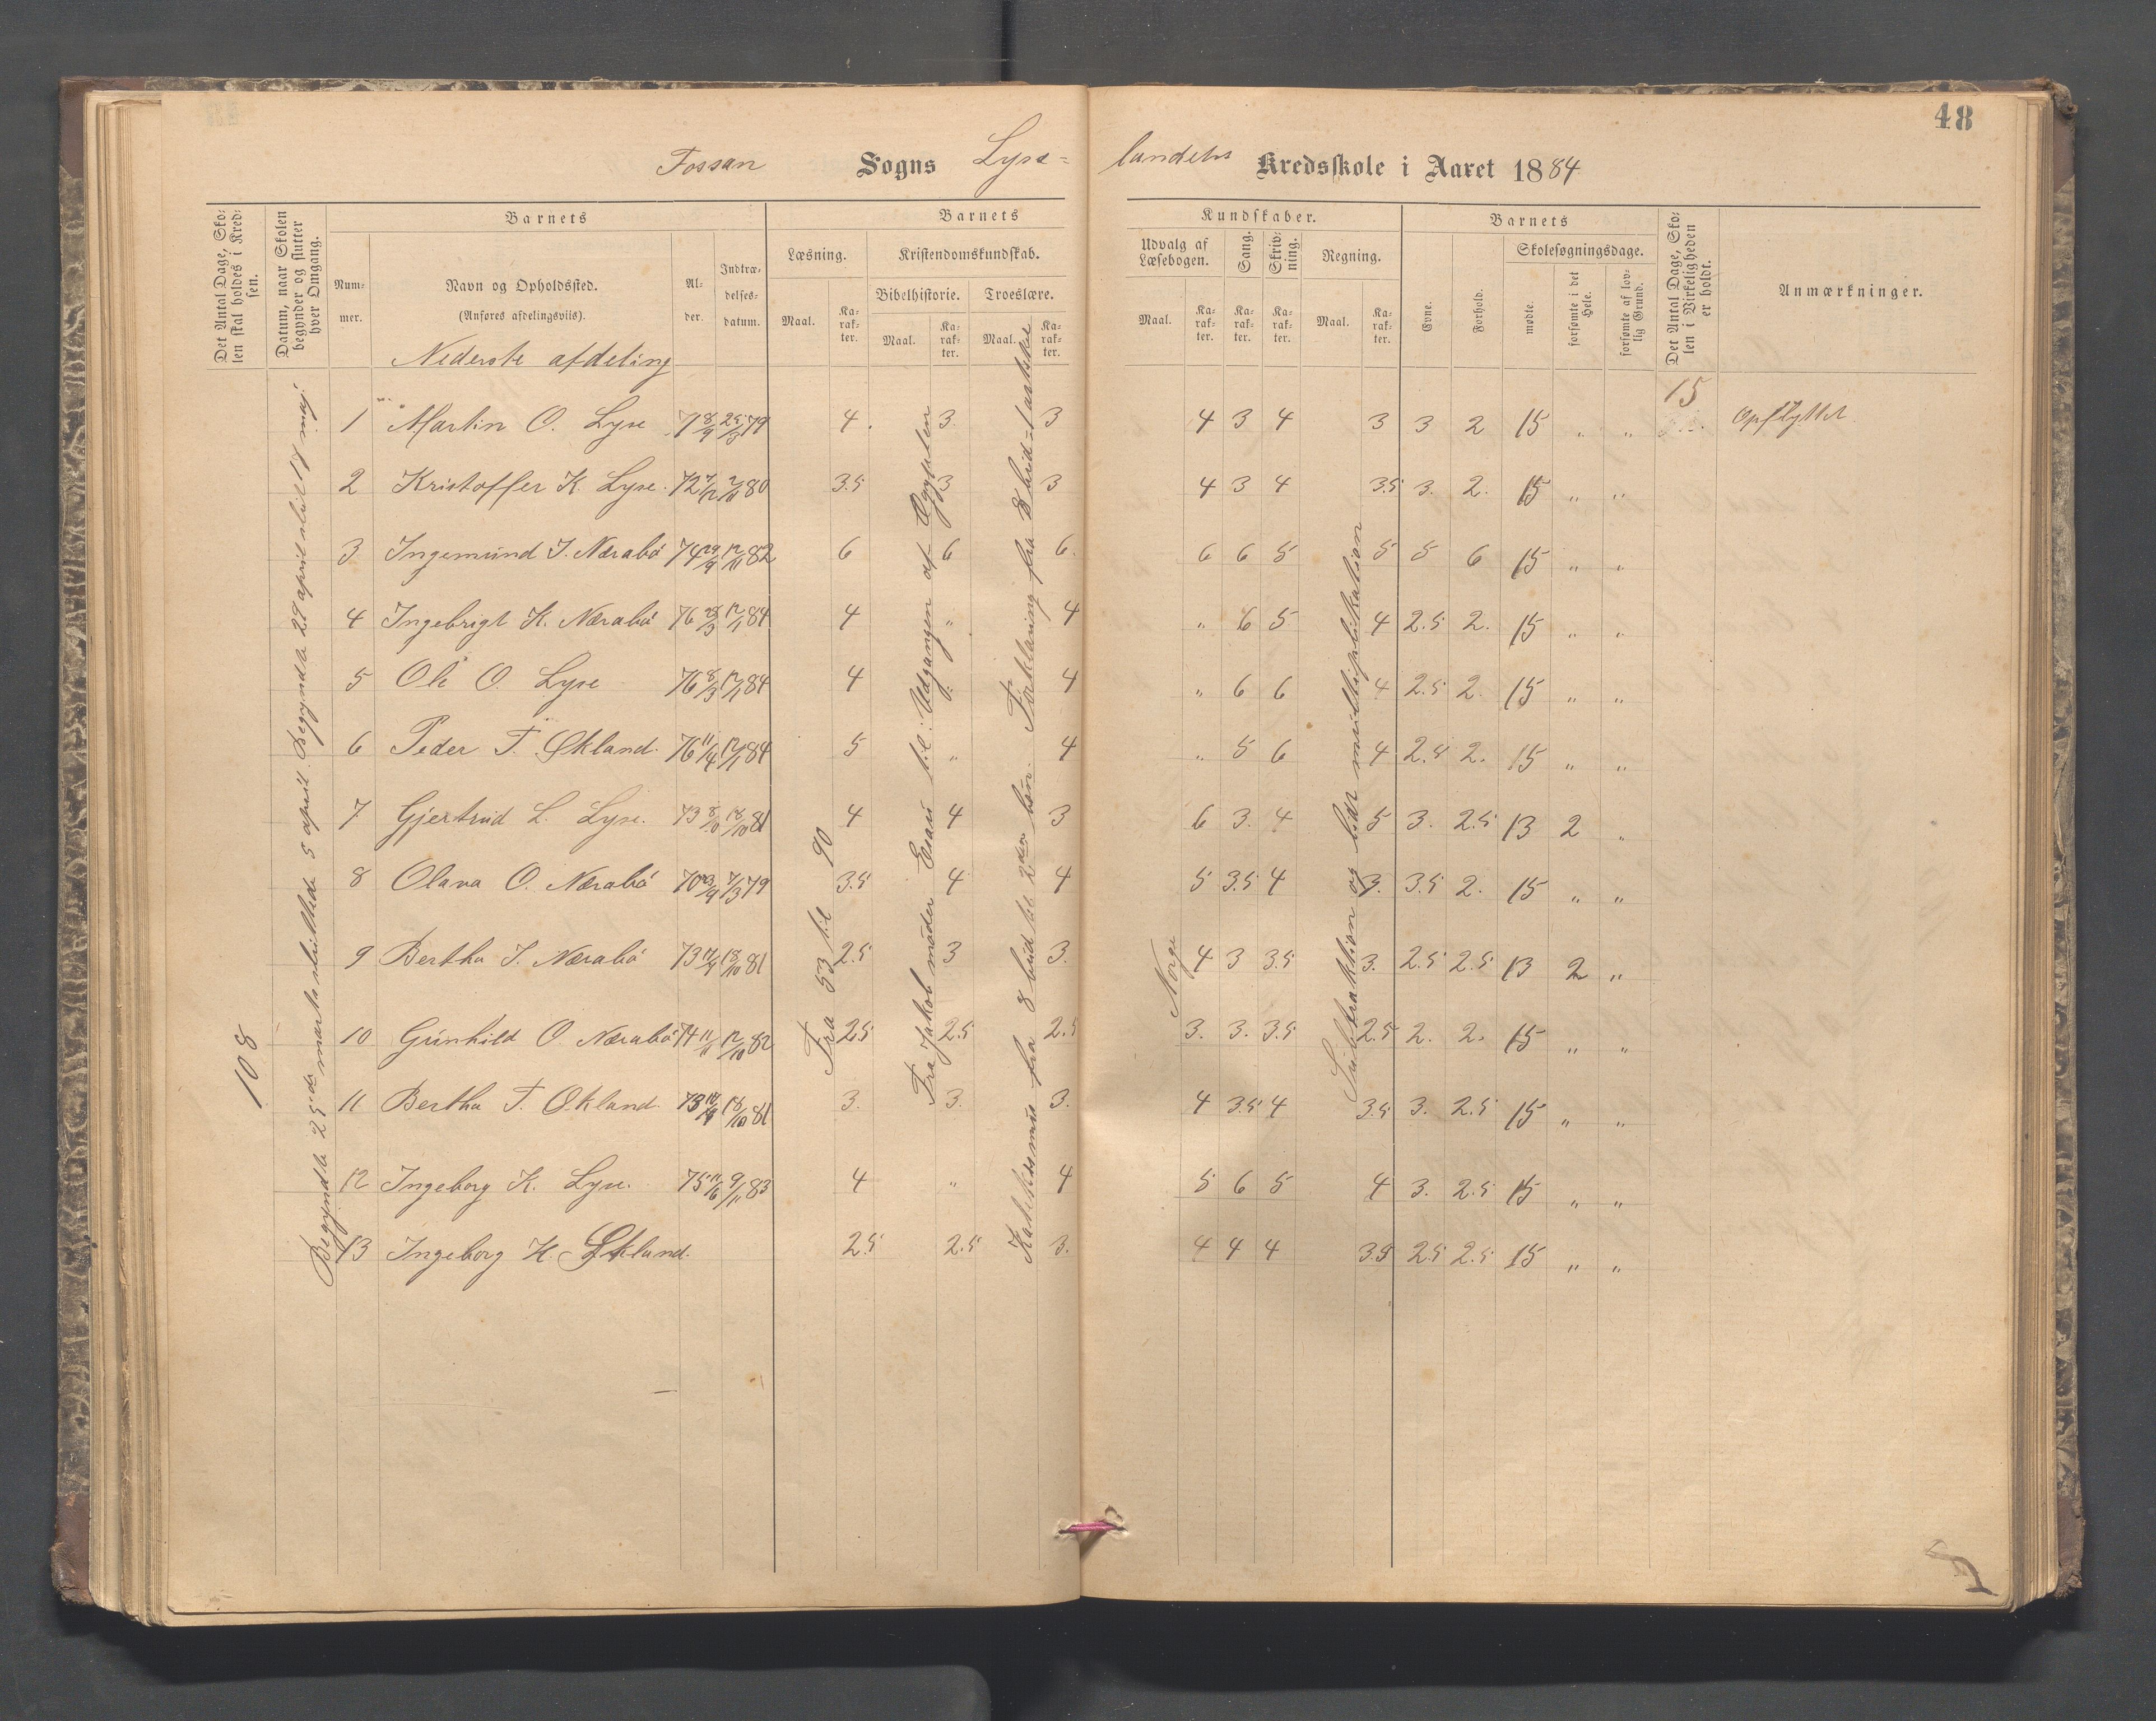 48
Fossan Sogns Lyse=
landets Kredsskole i Aaret 1884
Det Antal Dage, Sko-
len skal holdes i Kred-
sen.
Datum, naar Skolen
begynder og slutter
hver Omgang.
Barnets
Num-
mer.
Navn og Opholdssted.
(Anføres afdelingsviis).
Al-
der.
Indtræ-
delses-
datum.
Barnets
Læsning.
Maal.
Ka-
rak-
ter.
Kristendomskundskab.
Bibelhistorie.
Maal.
Ka-
rak-
ter.
Troeslære.
Maal.
Ka-
rak-
ter.
Kundskaber.
Udvalg af
Læsebogen.
Maal.
Ka-
rak-
ter.
Sang.
Ka-
rak-
ter.
Skriv-
ning.
Ka-
rak-
ter.
Regning.
Maal.
Ka-
rak-
ter.
Barnets
Evne.
Forhold.
Skolesøgningsdage.
mødte.
forsømte i det
Hele.
forsømte af lov-
lig Grund.
Det Antal Dage, Sko-
len i Virkeligheden
er holdt.
Anmærkninger.
Nederste afdeling
108
Begyndte 25de marts sluttede 5 april. Begyndte 29 april slut 17 maj.
Fra 53 til 90
Fra Jakob møder Esau til: Udgangen af Egypten
Katekismus fra 8 bud til 2den bøn. Forklaring fra 8 bud
Norge
Subtraktion og lidt multiplikation
15
1 Martin O. Lyse 71 8/9 25/3 79 4. 3. 3 4 3 4 3 3 2 15 " " Opflyttet
2 Kristoffer K. Lyse. 72 80 3.5 3 3 4 3 4 3.5 3. 2. 15 " "
3 Ingemund J. Nærabö 74 29/9 17/11 82 6 6 6. 6 6 5 5 5 6 15 " "
4 Ingebrigt K. Nærabö 76 17/1 84 4 " 4 " 6 5 4 2.5 2. 15 " "
5 Ole O. Lyse 76 8/3 17/1 84 4 " 4 " 6 6 4 2.5 2. 15 " "
6 Peder T. Økland. 76 11/4 17/1 84 5 " 4 " 5 6 4 2.5 2. 15 " "
7 Gjertrud L. Lyse. 73 8/10 18/10 81 4 4 3 6 3. 4 5 3. 2.5 13 2 "
8 Olava O. Nærabö 70 23/9 7/3 79 3.5 4 4 5 3.5 4 3. 3.5 2. 15 " "
9 Bertha J. Nærabö 73 18/10 81 2.5 3 3. 4 3 3.5 3. 2.5 2.5 13 2 "
10 Gunhild O. Nærabö 74 11/11 17/10 82 2.5 2.5 2.5 3. 3. 3.5 2.5 2. 2. 15 " "
11 Bertha T. Økland. 73 18/10 81 3. 3. 3. 4 3.5 4 3.5 3. 2.5 15 " "
12 Ingeborg K. Lyse. 75 11/6 9/11 83 4 " 4 5 6 5 4 3. 2.5 15 " "
13 Ingeborg H. Økland. 2.5 2.5 3. 4 4 4 3.5 2.5 2.5 15 " "